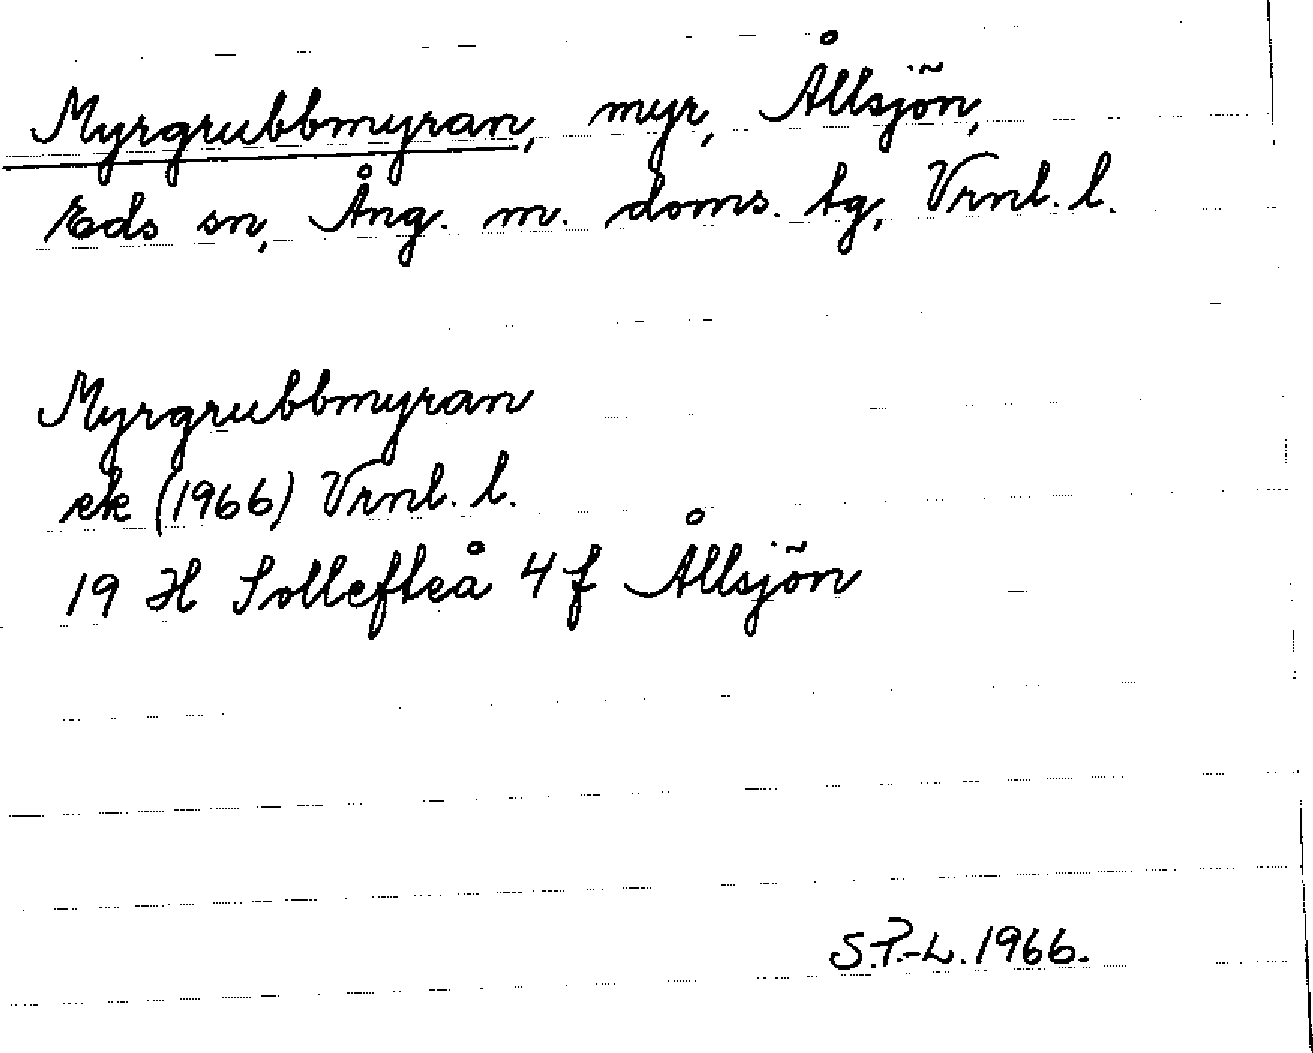 Myrgrubbmyran, myr, Ållsjön,
Eds sn, Ång. m. doms. tg, Vrnl. l.
Myrgrubbmyran
ek (1966) Vrnl. l.
19 H Sollefteå 4 f Ållsjön
S.P.-L. 1966.